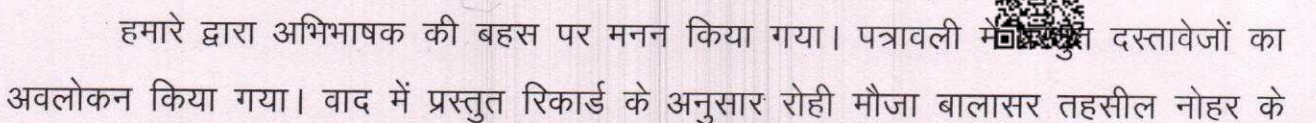 हमारे द्वारा अभिभाषक की बहस पर मनन किया गया। पत्रावली में दस्तावेजों का
अवलोकन किया गया। वाद में प्रस्तुत रिकार्ड के अनुसार रोही मौजा बालासर तहसील नोहर के